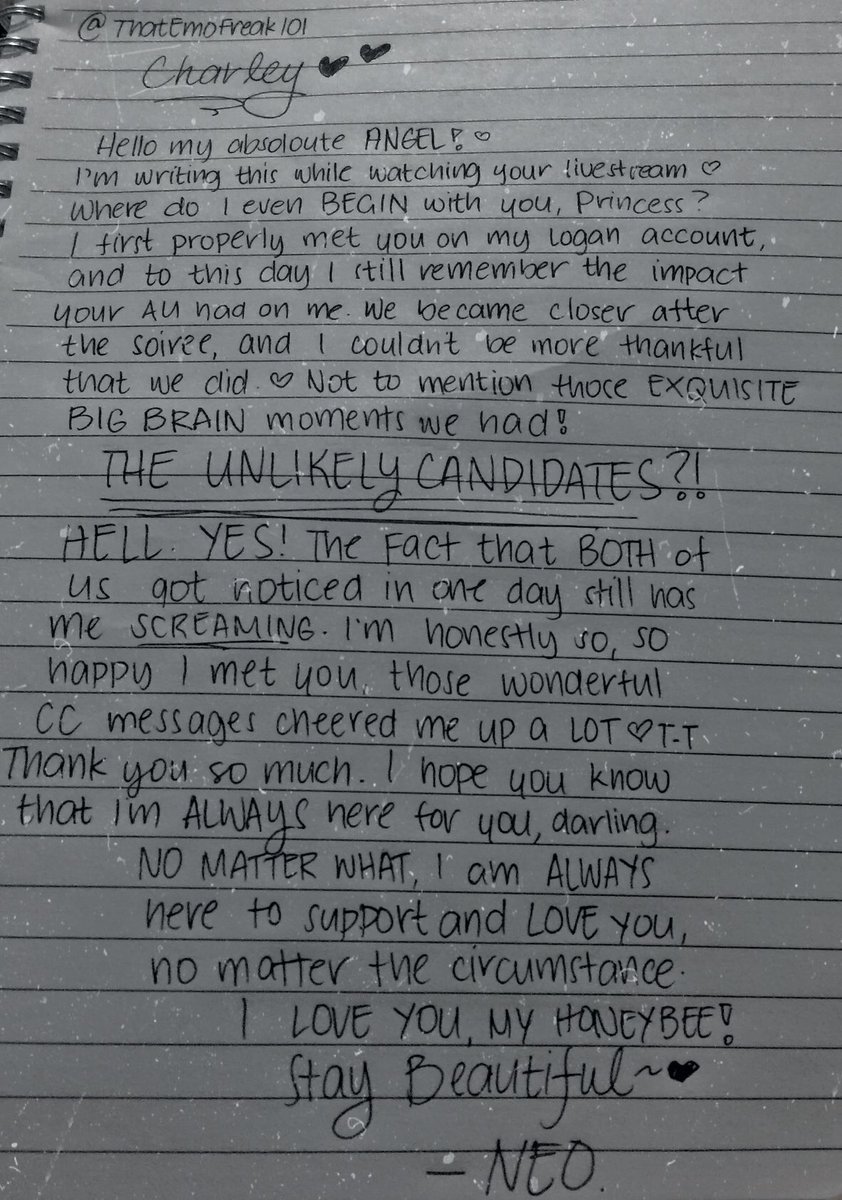 @ThatEmoFreak101
Charley
Hello my absoloute ANGEL! ♡
I'm writing this while watching your livestream ♡
Where do I even BEGIN with you, Princess?
I first properly met you on my Logan account,
and to this day I still remember the impact
your AU had on me. We became closer after
the soiree, and I couldn't be more thankful
that we did. ♡ Not to mention those EXQUISITE
BIG BRAIN moments we had!
THE UNLIKELY CANDIDATES?!
HELL. YES! The Fact that BOTH of
us got noticed in one day still has
me SCREAMING. I'm honestly so, so
happy I met you, those wonderful
CC messages cheered me up a LOT ♡ T-T
Thank you so much. I hope you know
that I'm ALWAYS here for you, darling.
NO MATTER WHAT, I am ALWAYS
here to support and LOVE YOU,
no matter the circumstance.
I LOVE YOU, MY HONEYBEE!
Stay Beautiful~♥
— NEO.